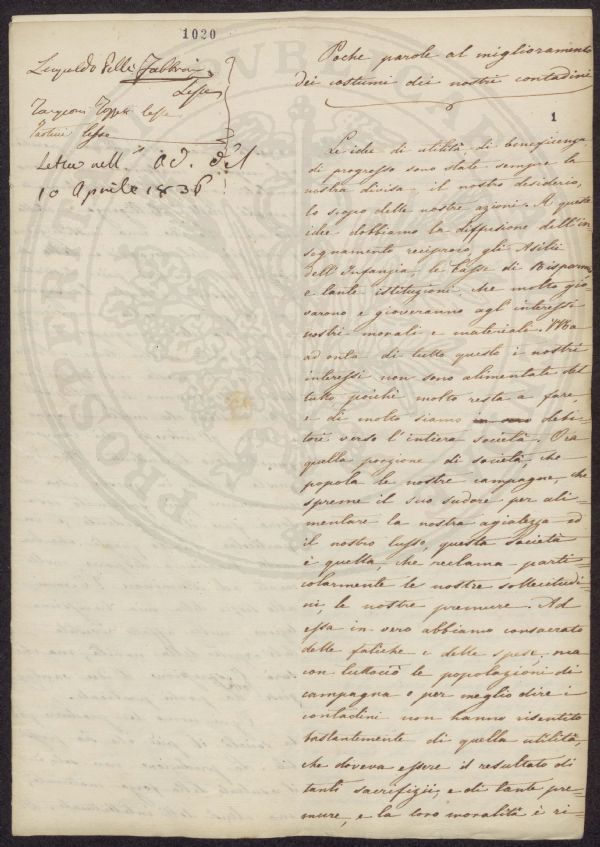 1020
Leopoldo delli Fabbroni
Lesse
Targioni Tozzetti lesse
Pastori lesse
Letta nell' Ad. del
10 Aprile 1836
Poche parole al miglioramento
dei costumi dei nostri contadini
1
Le idee di utilità, di beneficenza,
di progresso sono state sempre la
nostra divisa, il nostro desiderio,
lo scopo delle nostre azioni. A queste
idee dobbiamo la diffusione dell'in=
segnamento reciproco, gli Asili
dell'Infanzia, le Casse di Risparmio,
e tante istituzioni, che molto gio=
varono e gioveranno agl'interessi
nostri morali e materiali. Ma
ad onta di tutto questo i nostri
interessi non sono alimentate del
tutto, poichè molto resta a fare,
e di molto siamo in vero debi=
tori verso l'intiera società. Ora
quella porzione di società, che
popola le nostre campagne, che
spreme il suo sudore per ali=
mentare la nostra agiatezza ed
il nostro lusso, questa società
è quella, che reclama parti=
colarmente le nostre sollecitudi=
ni, le nostre premure. Ad
essa in vero abbiamo consacrato
delle fatiche e delle spese, ma
con tuttociò le popolazioni di
campagna o per meglio dire i
contadini non hanno risentito
bastantemente di quella utilità,
che doveva essere il resultato di
tanti sacrifizii, e di tante pre=
mure, e la loro moralità è ri=
PROSPERITATI PUBLICAE